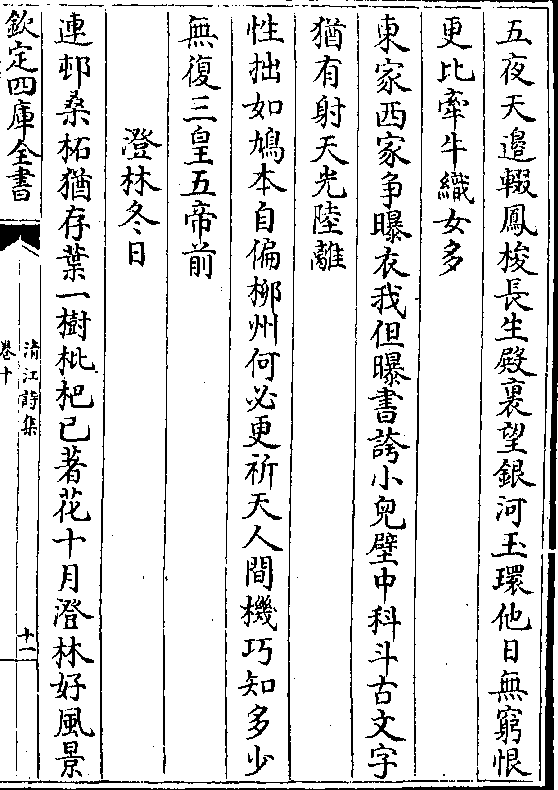 五夜天邉輟鳳梭長生殿裏望銀河玉環他日無窮恨
更比牽牛織女多
東家西家争曝衣我但曝書誇小兒壁中科斗古文字
猶有射天光陸離
性拙如鳩本自偏柳州何必更祈天人間機巧知多少
無復三皇五帝前
澄林冬日
連邨桑柘猶存葉一樹枇杷已著花十月澄林好風景
欽定四庫全書
清江詩集
卷十
十一